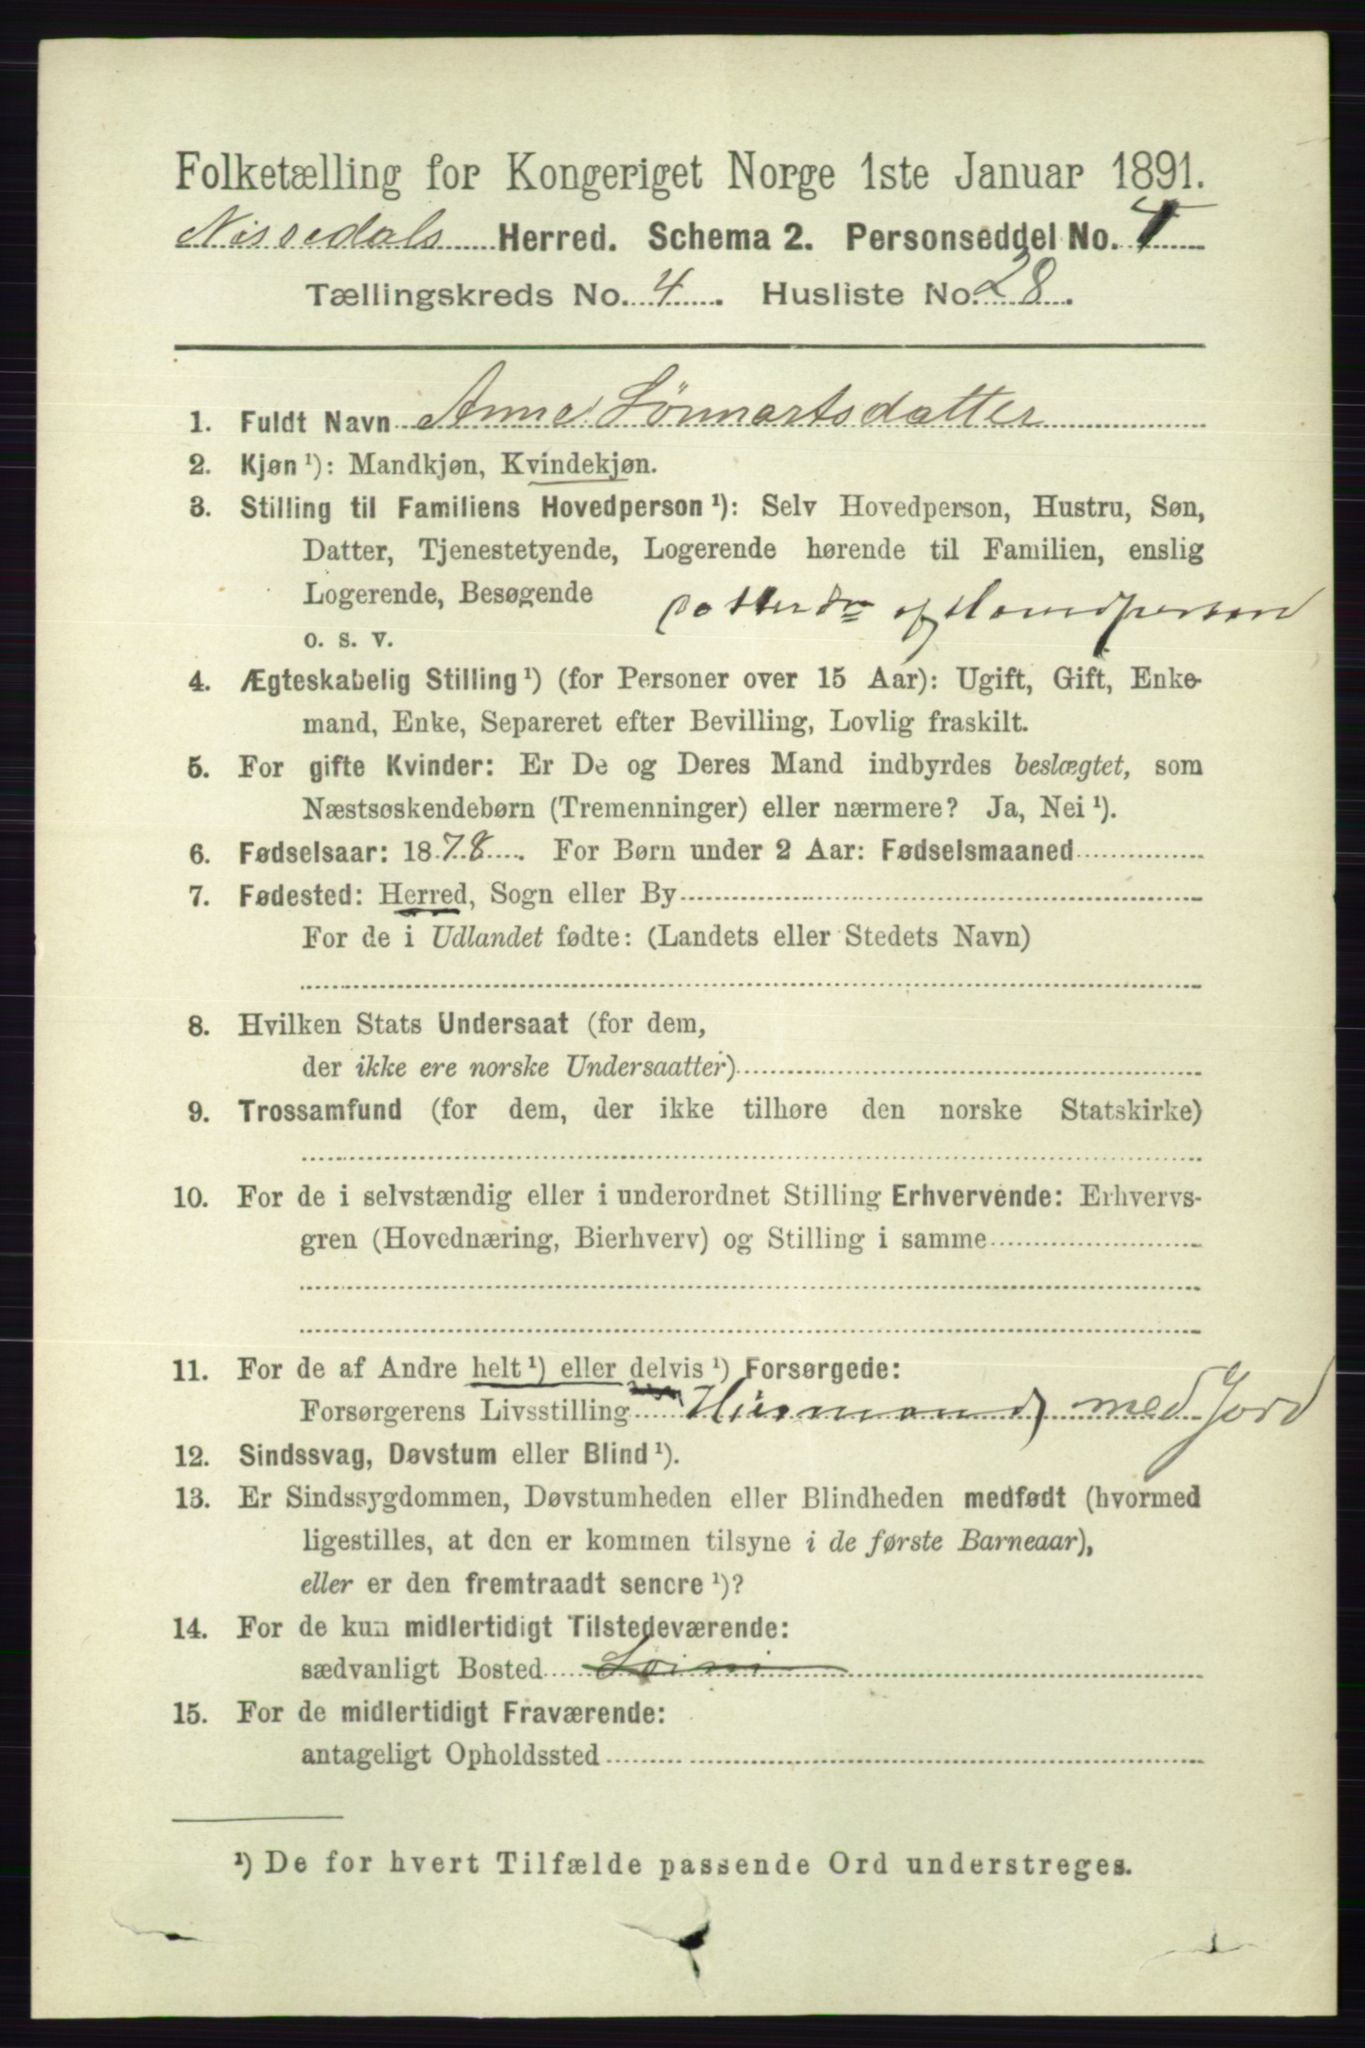 Folketælling for Kongeriget Norge 1ste Januar 1891.
Nissedals Herred. Schema 2. Personseddel No.
Tællingskreds No. 4. Husliste No. 28.
1. Fuldt Navn Anne Lønnartsdatter
2. Kjøn ¹): Mandkjøn, Kvindekjøn.
3. Stilling til Familiens Hovedperson ¹): Selv Hovedperson, Hustru, Søn,
Datter, Tjenestetyende, Logerende hørende til Familien, enslig
Logerende, Besøgende
o. s. v. af Hovedperson
4. Ægteskabelig Stilling ¹) (for Personer over 15 Aar): Ugift, Gift, Enke-
mand, Enke, Separeret efter Bevilling, Lovlig fraskilt.
5. For gifte Kvinder: Er De og Deres Mand indbyrdes beslægtet, som
Næstsøskendebørn (Tremenninger) eller nærmere? Ja, Nei ¹).
6. Fødselsaar: 1878. For Børn under 2 Aar: Fødselsmaaned
7. Fødested: Herred, Sogn eller By
For de i Udlandet fødte: (Landets eller Stedets Navn)
8. Hvilken Stats Undersaat (for dem,
der ikke ere norske Undersaatter)
9. Trossamfund (for dem, der ikke tilhøre den norske Statskirke)
10. For de i selvstændig eller i underordnet Stilling Erhvervende: Erhvervs-
gren (Hovednæring, Bierhverv) og Stilling i samme
11. For de af Andre helt ¹) eller delvis ¹) Forsørgede:
Forsørgerens Livsstilling Husmand med Jord
12. Sindssvag, Døvstum eller Blind ¹).
13. Er Sindssygdommen, Døvstumheden eller Blindheden medfødt (hvormed
ligestilles, at den er kommen tilsyne i de første Barneaar),
eller er den fremtraadt senere ¹)?
14. For de kun midlertidigt Tilstedeværende:
sædvanligt Bosted
15. For de midlertidigt Fraværende:
antageligt Opholdssted
¹) De for hvert Tilfælde passende Ord understreges.